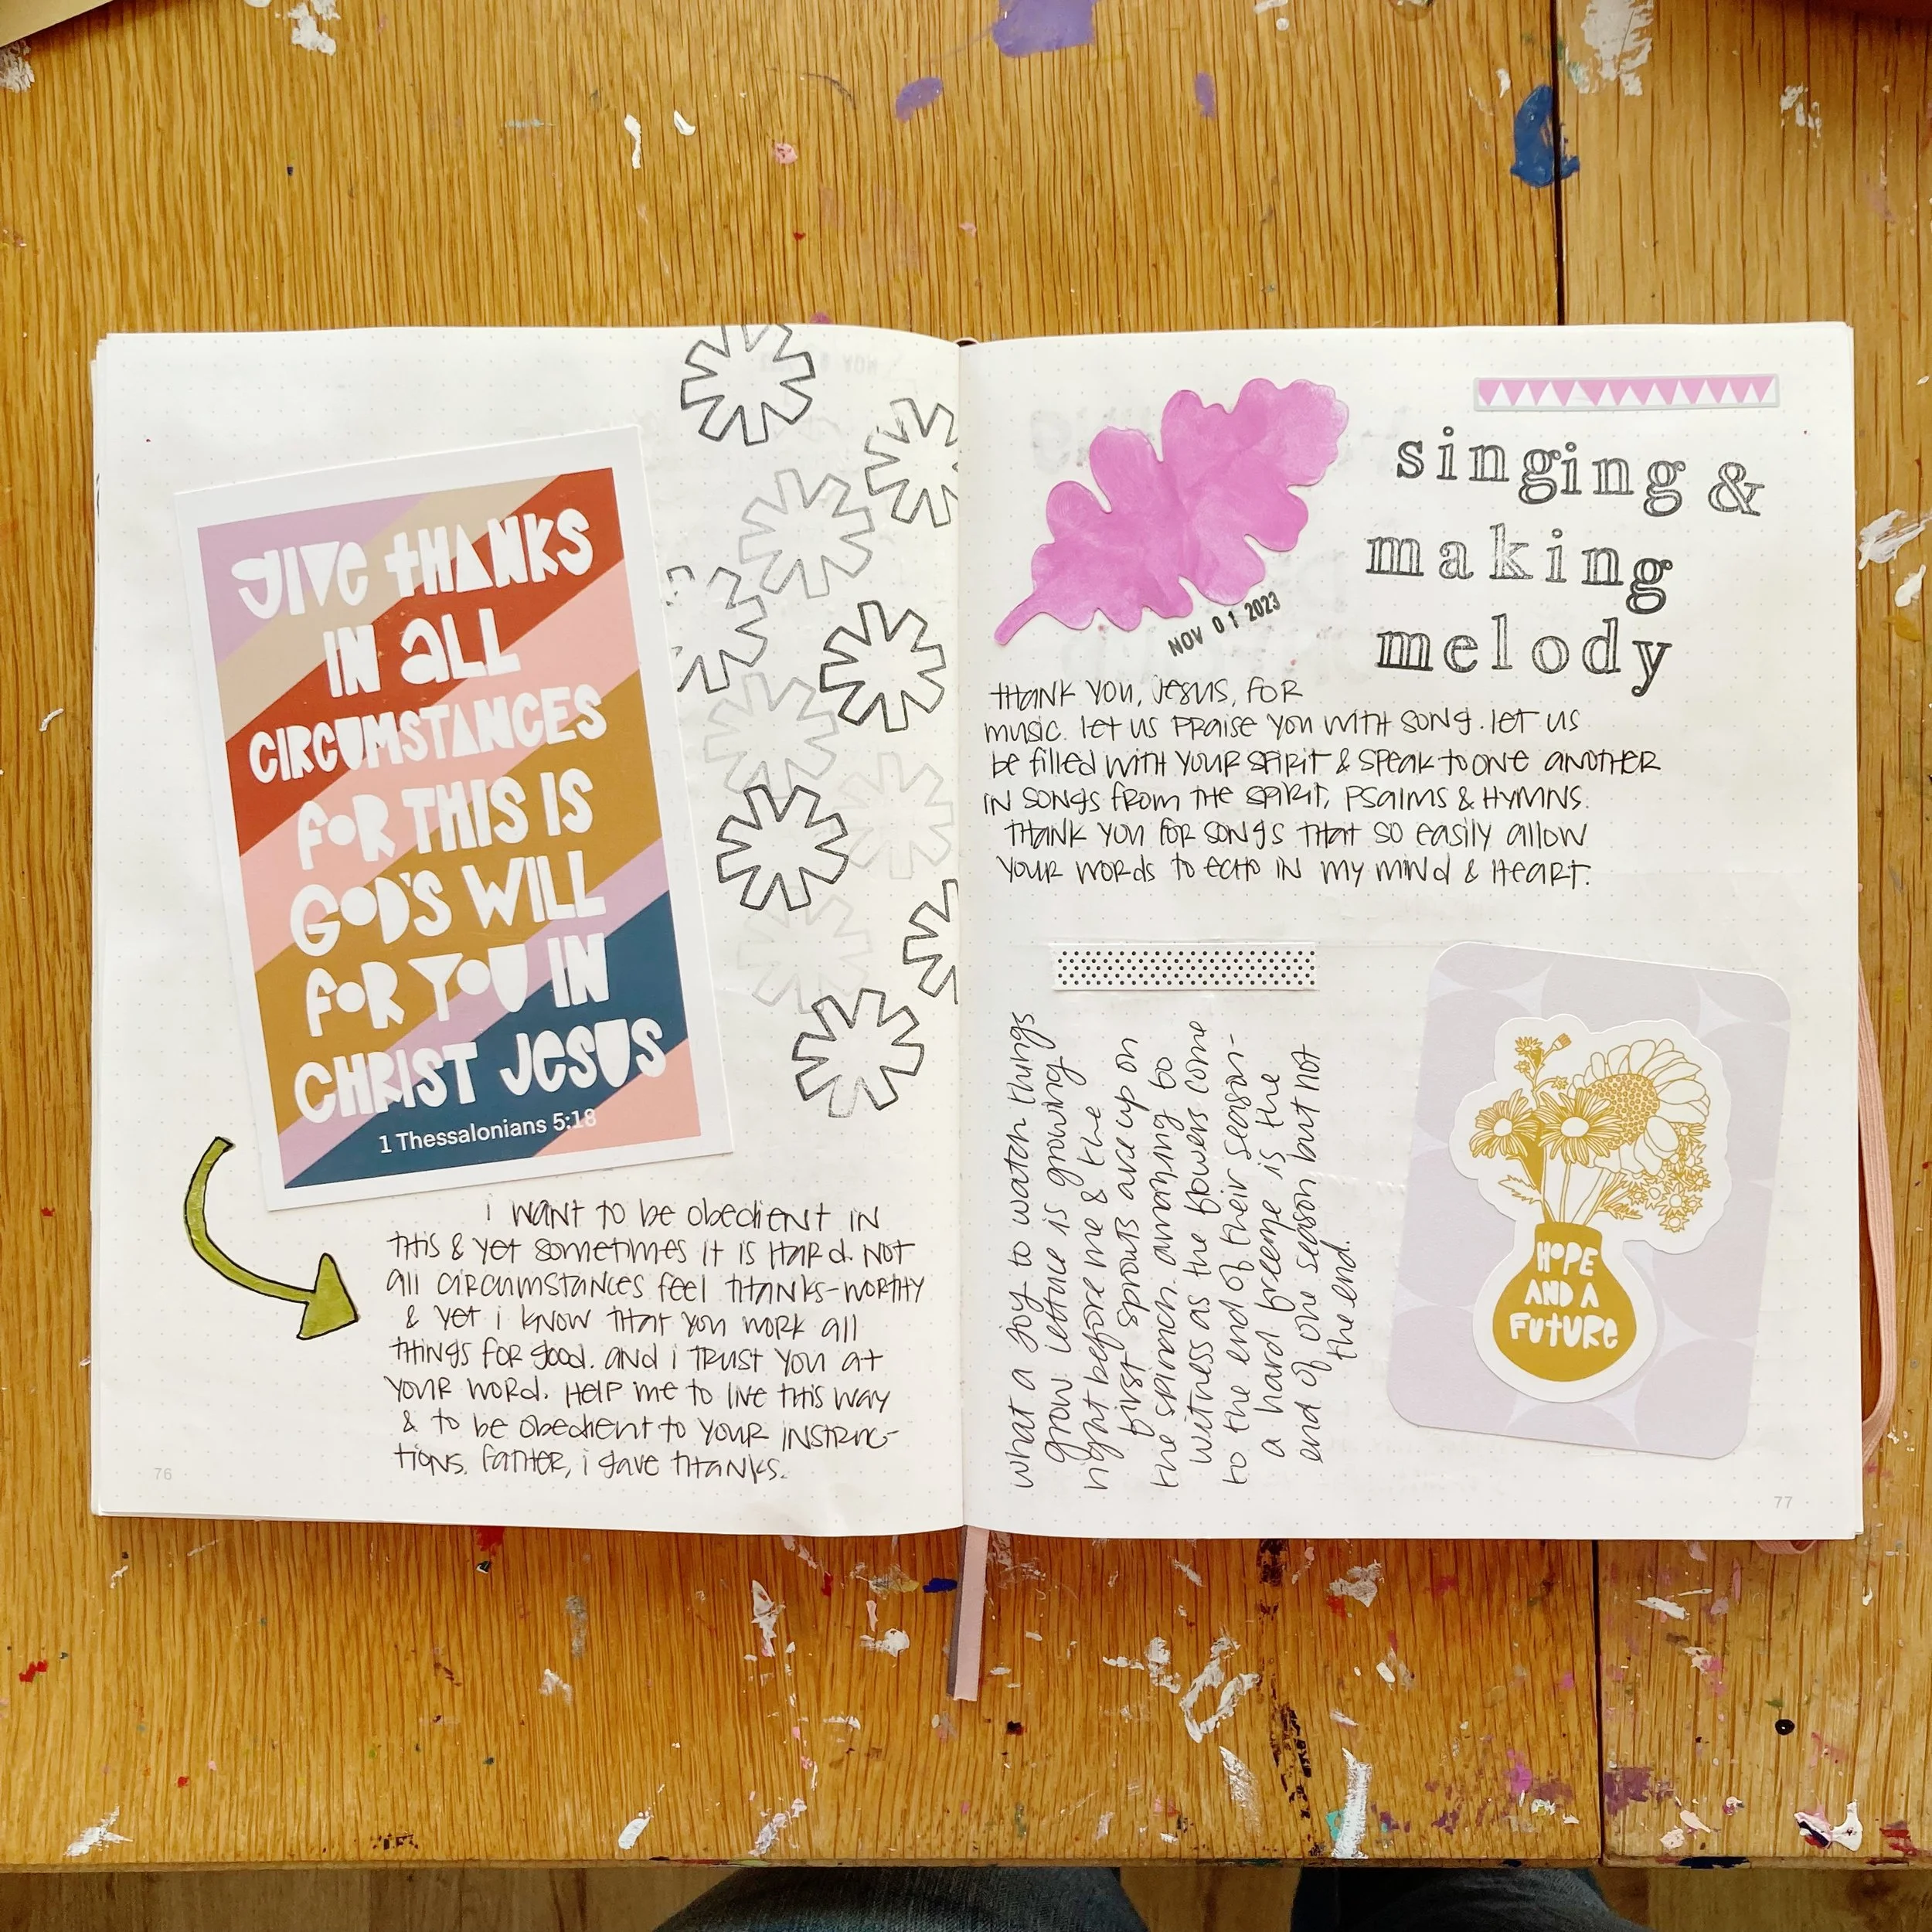 GIVE THANKS
IN ALL
CIRCUMSTANCES
FOR THIS IS
GOD'S WILL
FOR YOU IN
CHRIST JESUS
1 Thessalonians 5:18
i WANT TO be obedient IN
THIS & yet sometimes IT IS HARD. NOT
all circumstances feel THANKS-WORTHY
& yet i KNOW THAT YOU WORK all
THINGS FOR good. and i TRUST YOU AT
YOUR WORD. HELP me to live THIS WAY
& to be obedient to YOUR INSTRUC-
TIONS. FATHER, i gave THANKS.
76
NOV 01 2023
singing &
making
melody
THANK YOU, JESUS, FOR
music. let us PRaise YOU WITH SONG. let us
be filled WITH YOUR SPIRIT & SPeak to one ANOTHER
IN SONGS from THE SPIRIT, PSalms & HYMNS.
THANK YOU FOR SONGS THAT SO easily allow
YOUR WORDS to ECHO IN my MIND & HEART.
what a joy to watch things
grow. lettuce is growing
right before me & the
first sprouts are up on
the spinach. amazing to
witness as the flowers come
to the end of their season-
a hard freeze is the
end of one season but not
the end.
HOPE
AND A
FUTURE
77